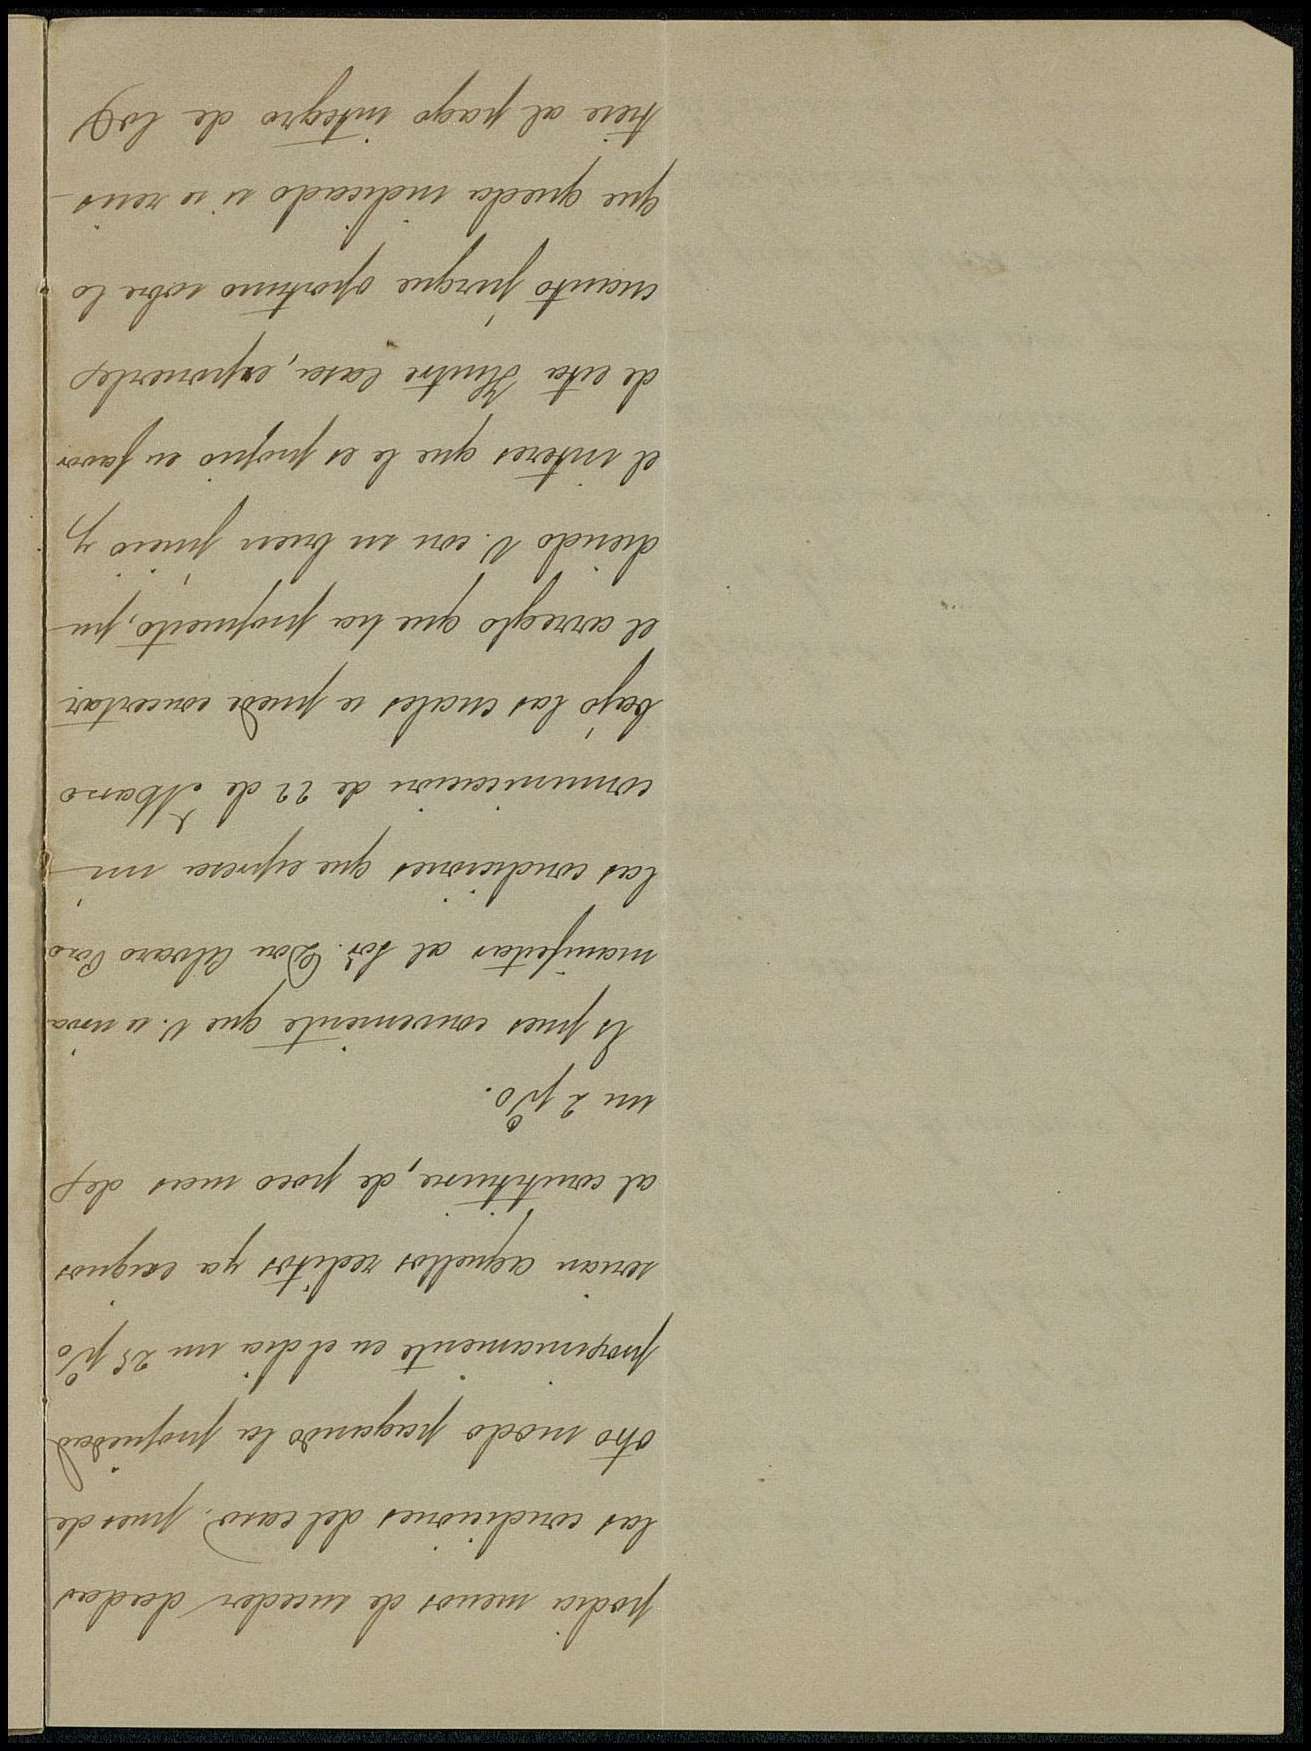 podia menos de suceder dadas
las condiciones del caso, pues de
otro modo pagando la propiedad
proximamente en el dia un 25 p%
serian aquellos reditos ya exiguos
al constituirse, de poco mas del
un 2 p%.
Es pues conveniente que V. se sirva
manifestar al Sor. Don Alvaro Caro
las condiciones que expresa mi
comunicacion de 22 de Marzo
bajo las cuales se puede concertar
el arreglo que ha propuesto, pu-
diendo V. con su buen juicio y
el interes que le es propio en favor
de esta Ilustre Casa, exponerle
cuanto juzgue oportuno sobre lo
que queda indicado si se resis-
tiere al pago integro de los